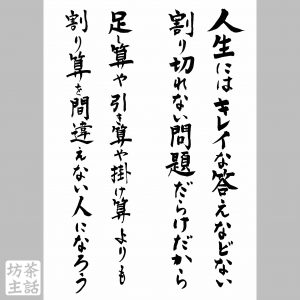 人生にはキレイな答えなどない
割り切れない問題だらけだから
足し算や引き算や掛け算よりも
割り算を間違えない人になろう
茶話
坊主